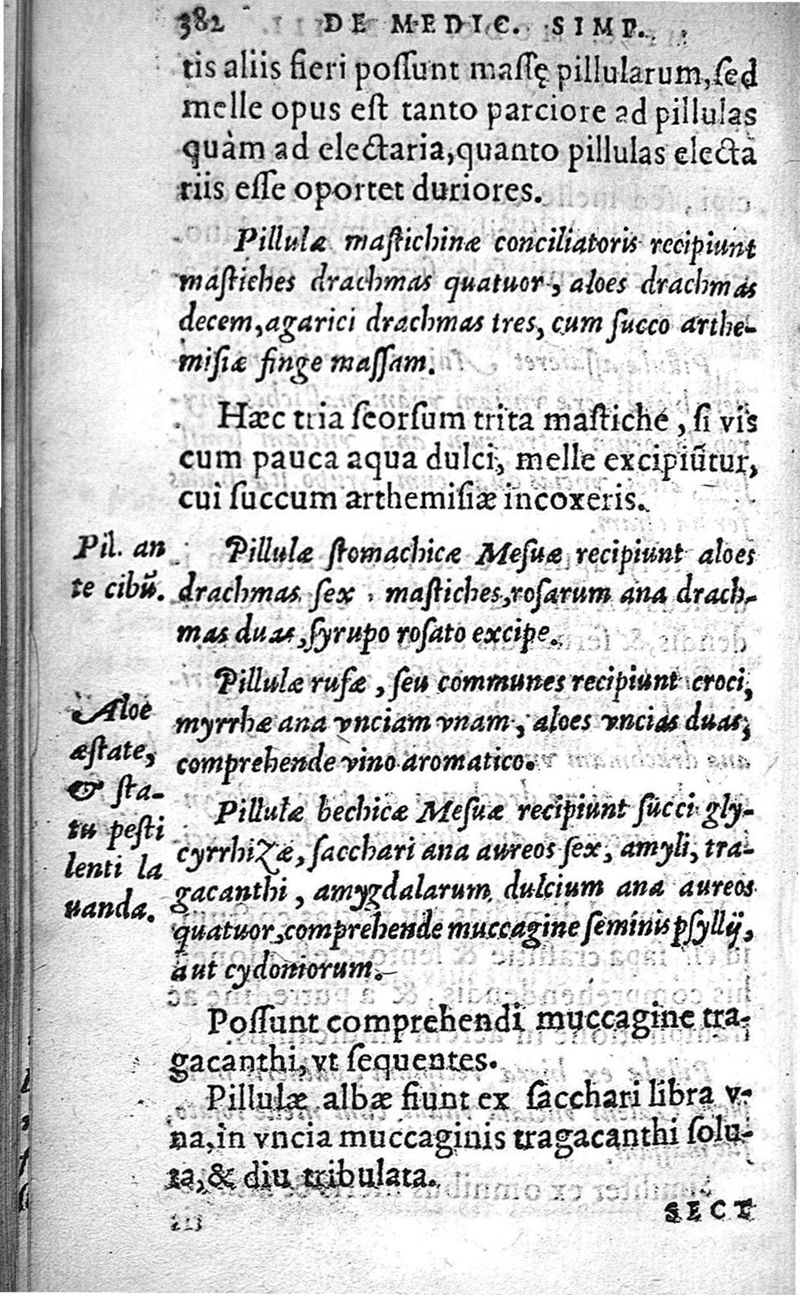 382 DE MEDIC. SIMP.
tis aliis fieri poſſunt maſſę pillularum, ſed
melle opus eſt tanto parciore ad pillulas
quàm ad electaria, quanto pillulas electa
riis eſſe oportet duriores.
Pillulæ maſtichinæ conciliatoris recipiunt
maſtiches drachmas quatuor, aloes drachmas
decem, agarici drachmas tres, cum ſucco arthe-
miſiæ finge maſſam.
Hæc tria ſeorſum trita maſtiche, ſi vis
cum pauca aqua dulci, melle excipiūtur,
cui ſuccum arthemiſiæ incoxeris.
Pil. an
te cibū.
Pillulæ ſtomachicæ Meſuæ recipiunt aloes
drachmas ſex, maſtiches, roſarum ana drach-
mas duas, ſyrupo roſato excipe.
Pillulæ rufæ, ſeu communes recipiunt croci,
myrrhæ ana vnciam vnam, aloes vncias duas,
comprehende vino aromatico.
Aloe
æſtate,
& ſta-
tu peſti
lenti la
uanda.
Pillulæ bechicæ Meſuæ recipiunt ſucci gly-
cyrrhizæ, ſacchari ana aureos ſex, amyli, tra-
gacanthi, amygdalarum dulcium ana aureos
quatuor, comprehende muccagine ſeminis pſyllij,
aut cydoniorum.
Poſſunt comprehendi muccagine tra-
gacanthi, vt ſequentes.
Pillulæ albæ fiunt ex ſacchari libra v-
na, in vncia muccaginis tragacanthi ſolu-
ta, & diu tribulata.
SECT